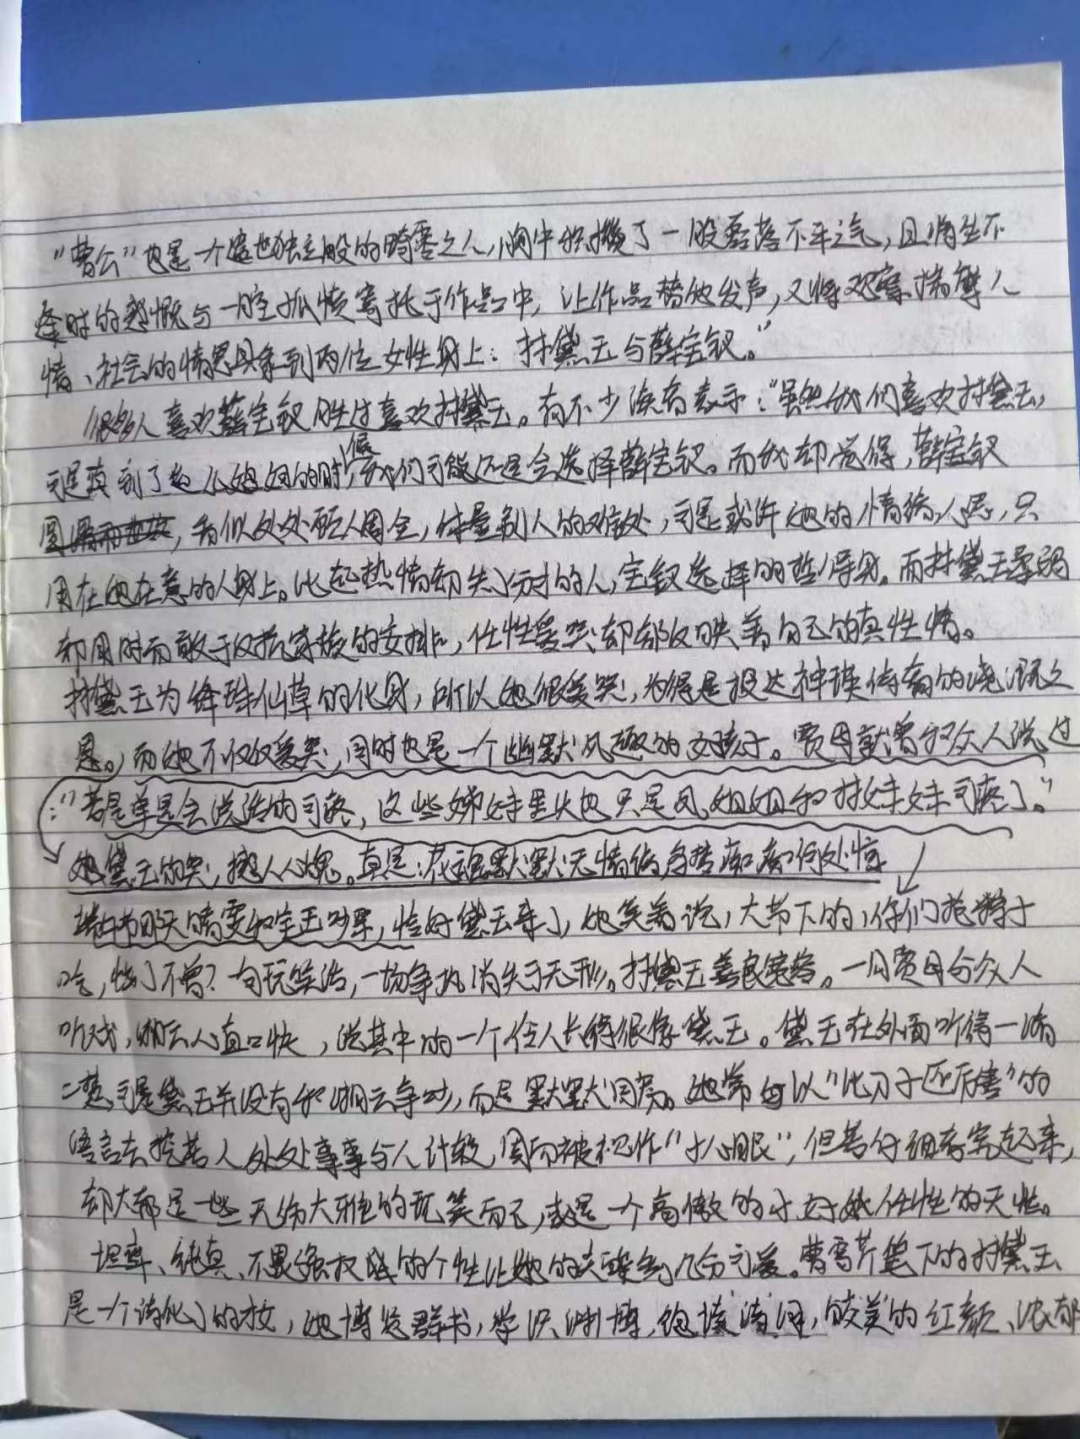 "曹公"也是一个遗世独立般的畸零之人,胸中积攒了一股磊落不平之气,且将生不
逢时的感慨与一腔孤愤寄托于作品中,让作品替他发声,又将观察揣摩人
情、社会的情思具象到两位女性身上:林黛玉与薛宝钗。"
很多人喜欢薛宝钗胜过喜欢林黛玉。有不少读者表示:"虽然我们喜欢林黛玉,
可是真到了娶媳妇的时候,我们可能还是会选择薛宝钗。而我却觉得,薛宝钗
,看似处处顾人周全,体量别人的难处,可是或许她的情绪,心思,只
用在她在意的人身上。比起热情却失了分寸的人,宝钗选择的哲保身。而林黛玉柔弱
却同时而敢于反抗家族的安排,任性爱哭却都反映着自己的真性情。
林黛玉为绛珠仙草的化身,所以她很爱哭,为得是报达神瑛侍者的浇溉之
恩。而她不仅仅爱哭,同时也是一个幽默风趣的女孩子。贾母就曾和众人说过
:"若是单是会说话的可疼,这些姊妹里头也只是凤姐姐和林妹妹可疼了。"
黛玉的哭,揽人心魄。真是:花魂默默无情绪,鸟梦痴痴何处惊
端午节那天晴雯和宝玉吵架,恰好黛玉来了,她笑着说,大节下的,你们抢粽子
吃,恼了不曾?一句玩笑话,一场争执消失于无形。林黛玉善良宽容。一日贾母与众人
听戏,湘云心直口快,说其中的一个伶人长得很像黛玉。黛玉在外面听得一清
二楚,可是黛玉并没有和湘云争吵,而是默默。她常每以"比刀子还厉害"的
语言去挖苦人处处事事与人计较,因而被视作"小心眼",但若仔细考究起来,
却大都是一些无伤大雅的玩笑而已,或是一个高傲的小女孩任性的天性。
坦率、纯真、不畏强权威的个性让她的几分可爱。曹雪芹笔下的林黛玉
是一个诗化了的女,她博览群书,学识渊博,的红颜、浓郁